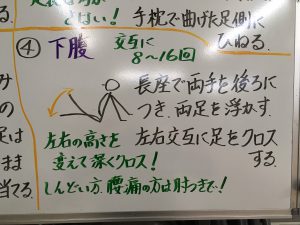 とはい！
手枕で曲げた足側に
ひねる.
④ 下腹 交互に
8〜16回
長座で両手を後ろに
つき、両足を浮かす.
左右交互に足をクロス
する.
左右の高さを
変えて深くクロス！
しんどい方、腰痛の方は肘つきで！
みの
足は
まま
当てる.